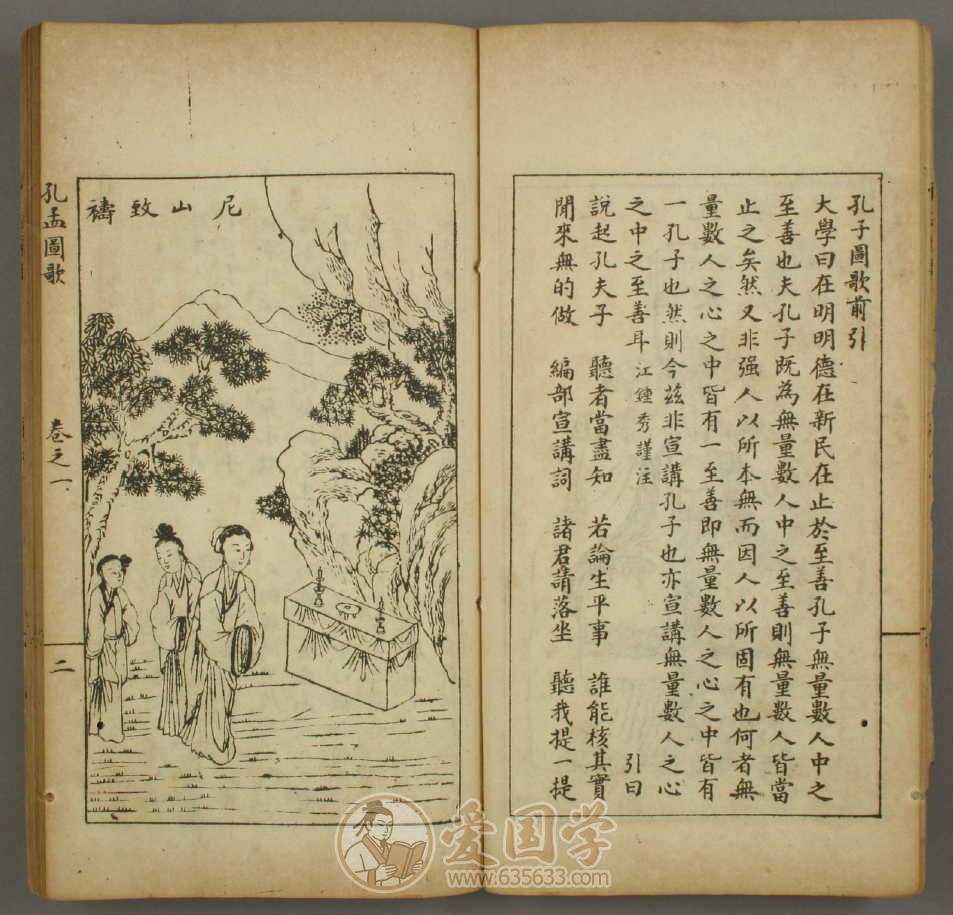 孔子圖歌前引
大學曰在明明德在新民在止於至善孔子無量數人中之
至善也夫孔子既為無量數人中之至善則無量數人皆當
止之矣然又非强人以所本無而因人以所固有也何者無
量數人之心之中皆有一至善即無量數人之心之中皆有
一孔子也然則今茲非宣講孔子也亦宣講無量數人之心
之中之至善耳 江鍾秀謹注 引曰
說起孔夫子 聽者當盡知 若論生平事 誰能核其實
閒來無的做 編部宣講詞 諸君請落坐 聽我提一提
尼山致禱
孔孟圖歌 卷之一 二
爱国学
www.635633.com